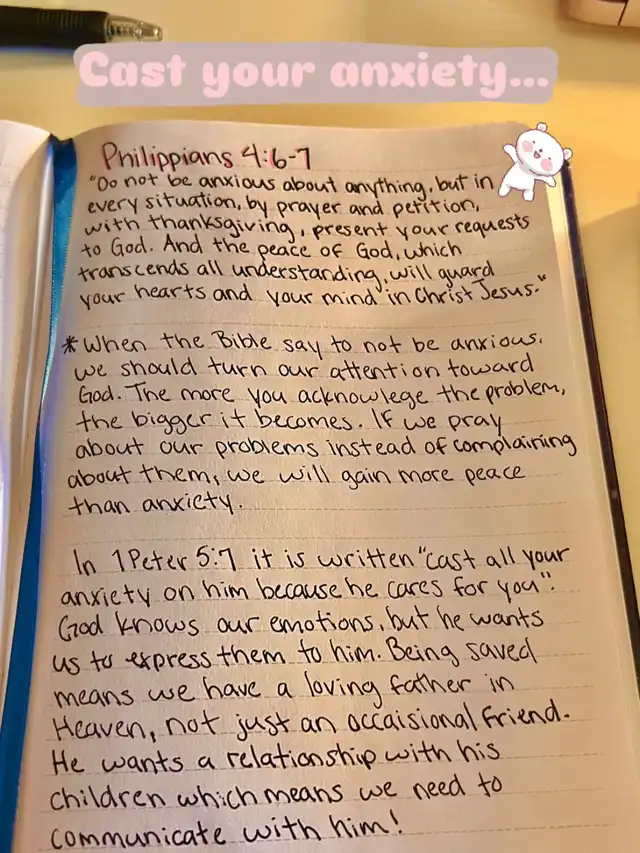 Cast your anxiety...
Philippians 4:6-7
"Do not be anxious about anything, but in
every situation, by prayer and petition,
with thanksgiving, present your requests
to God. And the peace of God, which
transcends all understanding, will guard
your hearts and your mind in Christ Jesus."
*When the Bible say to not be anxious,
we should turn our attention toward
God. The more you acknowlege the problem,
the bigger it becomes. If we pray
about our problems instead of complaining
about them, we will gain more peace
than anxiety.
In 1 Peter 5:7 it is written "cast all your
anxiety on him because he cares for you".
God knows our emotions, but he wants
us to express them to him. Being saved
means we have a loving father in
Heaven, not just an occaisional friend.
He wants a relationship with his
children which means we need to
communicate with him!